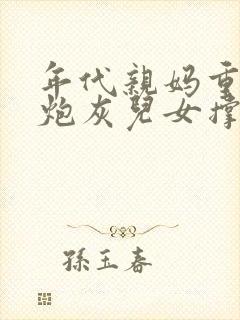 年代親妈重
炮灰兒女撑
孫玉春